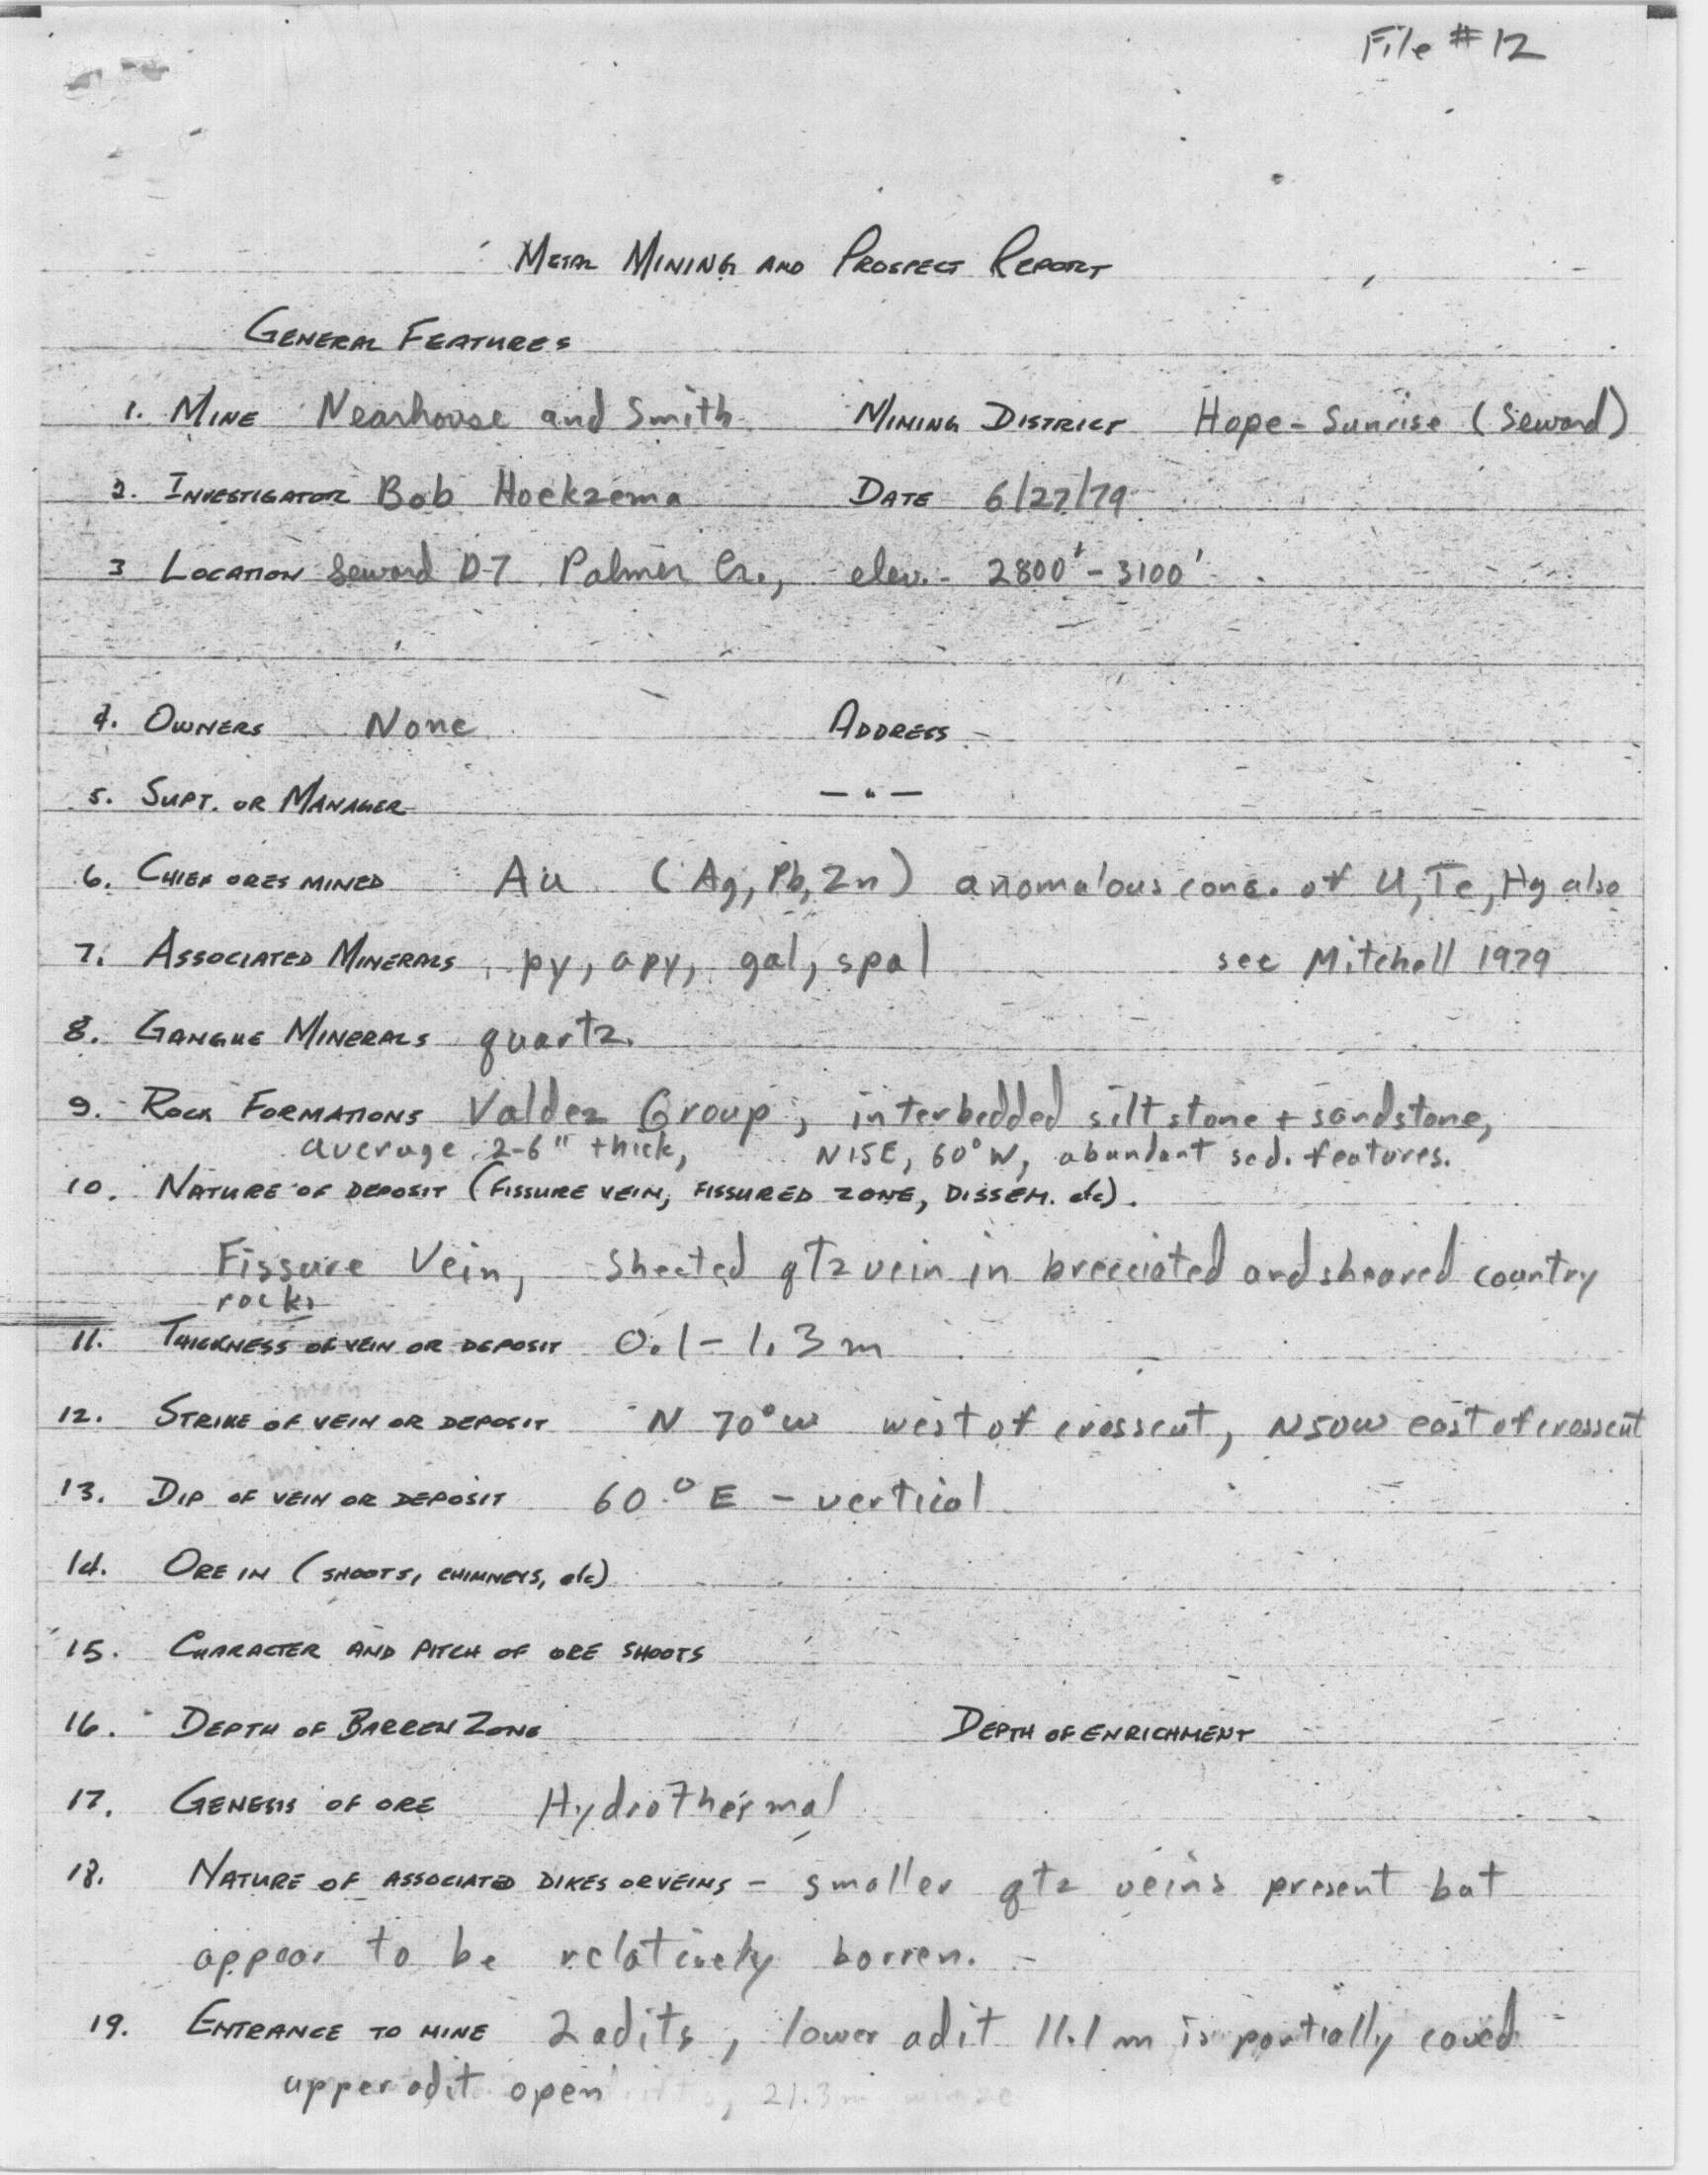 File #12
METAL MINING AND PROSPECT REPORT
GENERAL FEATURES
1. MINE Nearhouse and Smith MINING DISTRICT Hope-Sunrise (Seward)
2. INVESTIGATOR Bob Hoekzema DATE 6/27/79
3 LOCATION Seward D-7 Palmer Cr., elev. 2800' - 3100'
4. OWNERS None ADDRESS -
5. SUPT. OR MANAGER — " —
6. CHIEF ORES MINED Au (Ag, Pb, Zn) anomalous conc. of U, Te, Hg also
7. ASSOCIATED MINERALS py, apy, gal, spal see Mitchell 1979
8. GANGUE MINERALS quartz.
9. ROCK FORMATIONS Valdez Group, interbedded siltstone + sandstone,
average 2-6" thick, N15E, 60°W, abundant sed. features.
10. NATURE OF DEPOSIT (FISSURE VEIN, FISSURED ZONE, DISSEM. etc).
Fissure Vein, Sheeted qtz vein in brecciated and sheared country
rocks
11. THICKNESS OF VEIN OR DEPOSIT 0.1 - 1.3 m
12. STRIKE OF VEIN OR DEPOSIT N 70° W west of crosscut, N50W east of crosscut
13. DIP OF VEIN OR DEPOSIT 60° E - vertical
14. ORE IN (SHOOTS, CHIMNEYS, etc)
15. CHARACTER AND PITCH OF ORE SHOOTS
16. DEPTH OF BARREN ZONE DEPTH OF ENRICHMENT
17. GENESIS OF ORE Hydrothermal
18. NATURE OF ASSOCIATED DIKES OR VEINS - smaller qtz veins present but
appear to be relatively barren. -
19. ENTRANCE TO MINE 2 adits, lower adit 11.1 m is partially caved
upper adit open , 21.3m